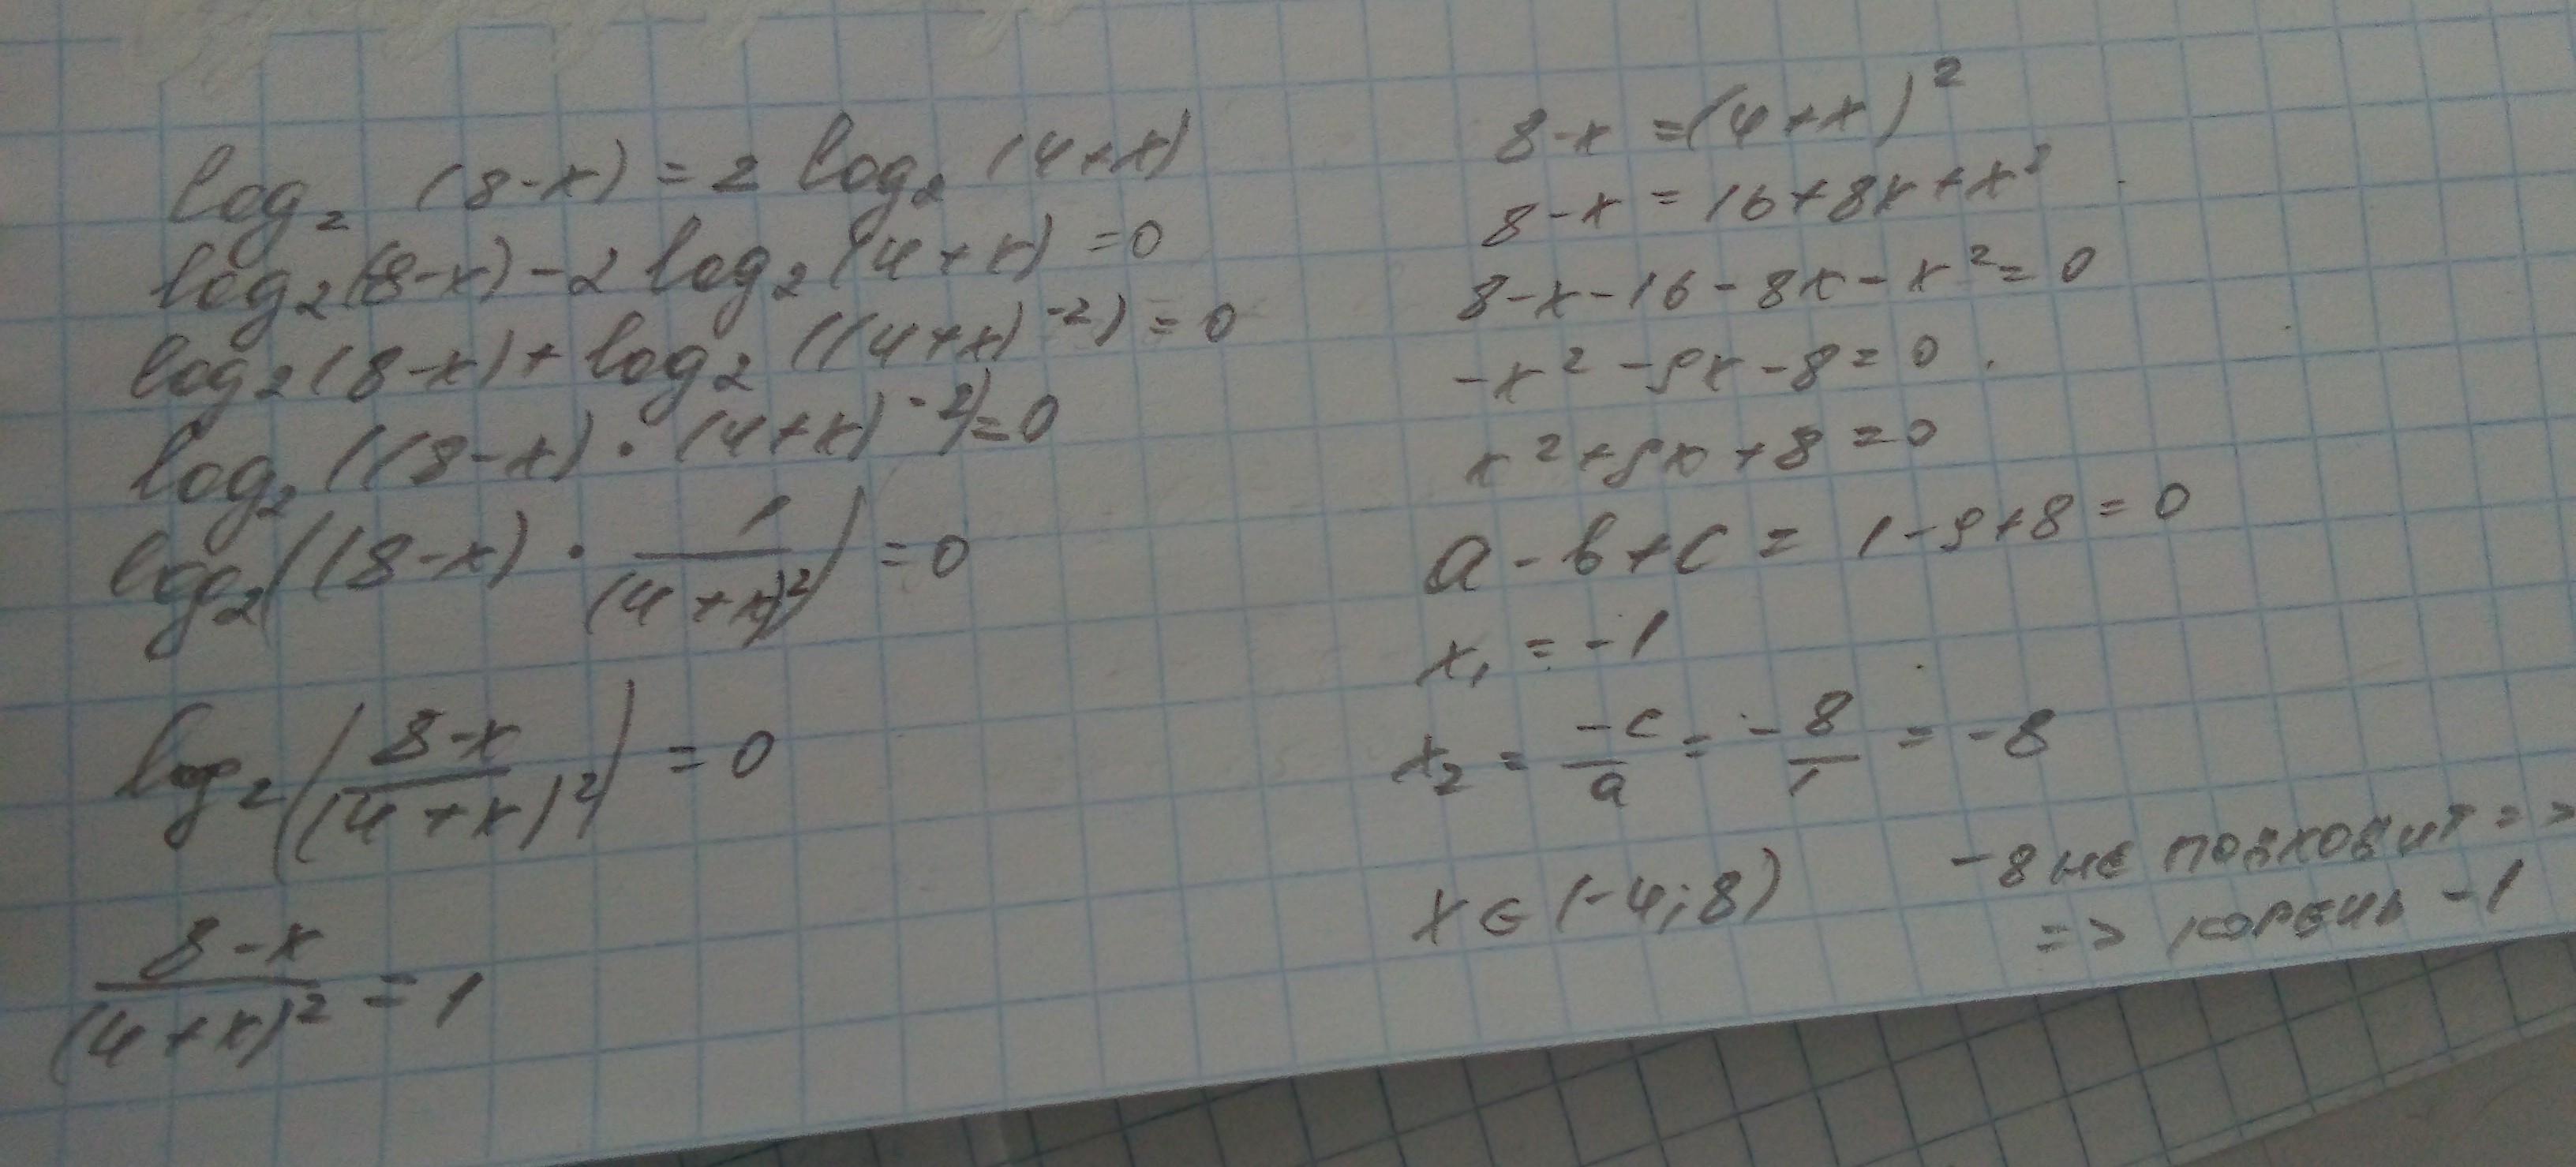 log₂ (8-x) = 2 log₂ (4+x)
log₂(8-x) - 2 log₂(4+x) = 0
log₂(8-x) + log₂((4+x)⁻²) = 0
log₂((8-x) · (4+x)⁻²) = 0
log₂((8-x) · 1/(4+x)²) = 0
log₂((8-x)/(4+x)²) = 0
(8-x)/(4+x)² = 1
8-x = (4+x)²
8-x = 16+8x+x²
8-x-16-8x-x² = 0
-x²-9x-8=0
x²+9x+8=0
a-b+c = 1-9+8=0
x₁ = -1
x₂ = -c/a = -8/1 = -8
x∈(-4;8)
-8 не подходит =>
=> корень -1